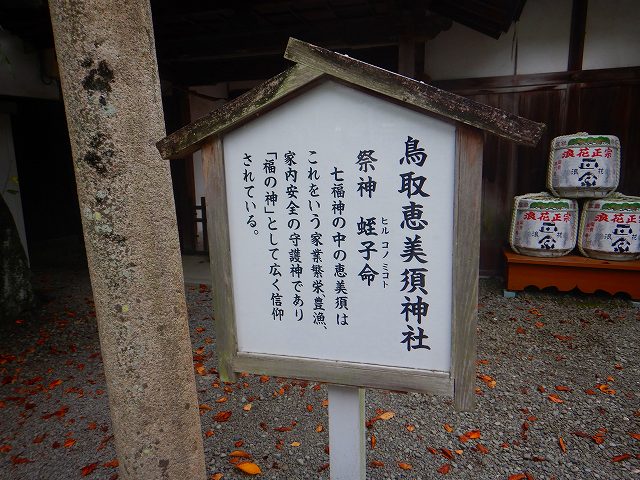 鳥取恵美須神社
祭神 蛭子命
ヒル コノ ミコト
七福神の中の恵美須は
これをいう家業繁栄、豊漁、
家内安全の守護神であり
「福の神」として広く信仰
されている。
浪花正宗
浪花
浪花正宗
浪花
浪花正宗
浪花